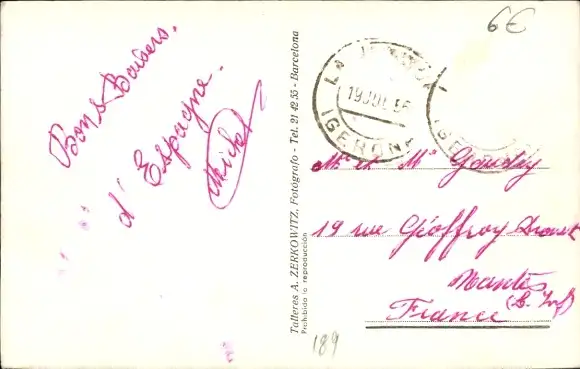 Bons Baisers.
d'Espagne.
Michel
Talleres A. ZERKOWITZ. Fotógrafo - Tel. 21 42 55 - Barcelona
Prohibida la reproducción
6€
LA
19 JUL 56
(GERONA)
Mr et Me
19 rue Géoffroy Drouet
Nantes
(L. Inf)
France
189